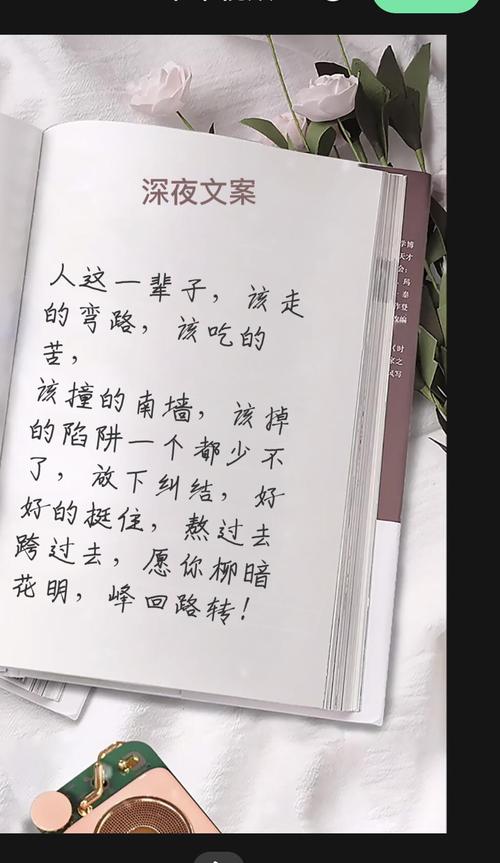 深夜文案
人这一辈子，该走
的弯路，该吃的
苦，
该撞的南墙，该掉
的陷阱一个都少不
了，放下纠结，好
好的挺住，熬过去
跨过去，愿你柳暗
花明，峰回路转！